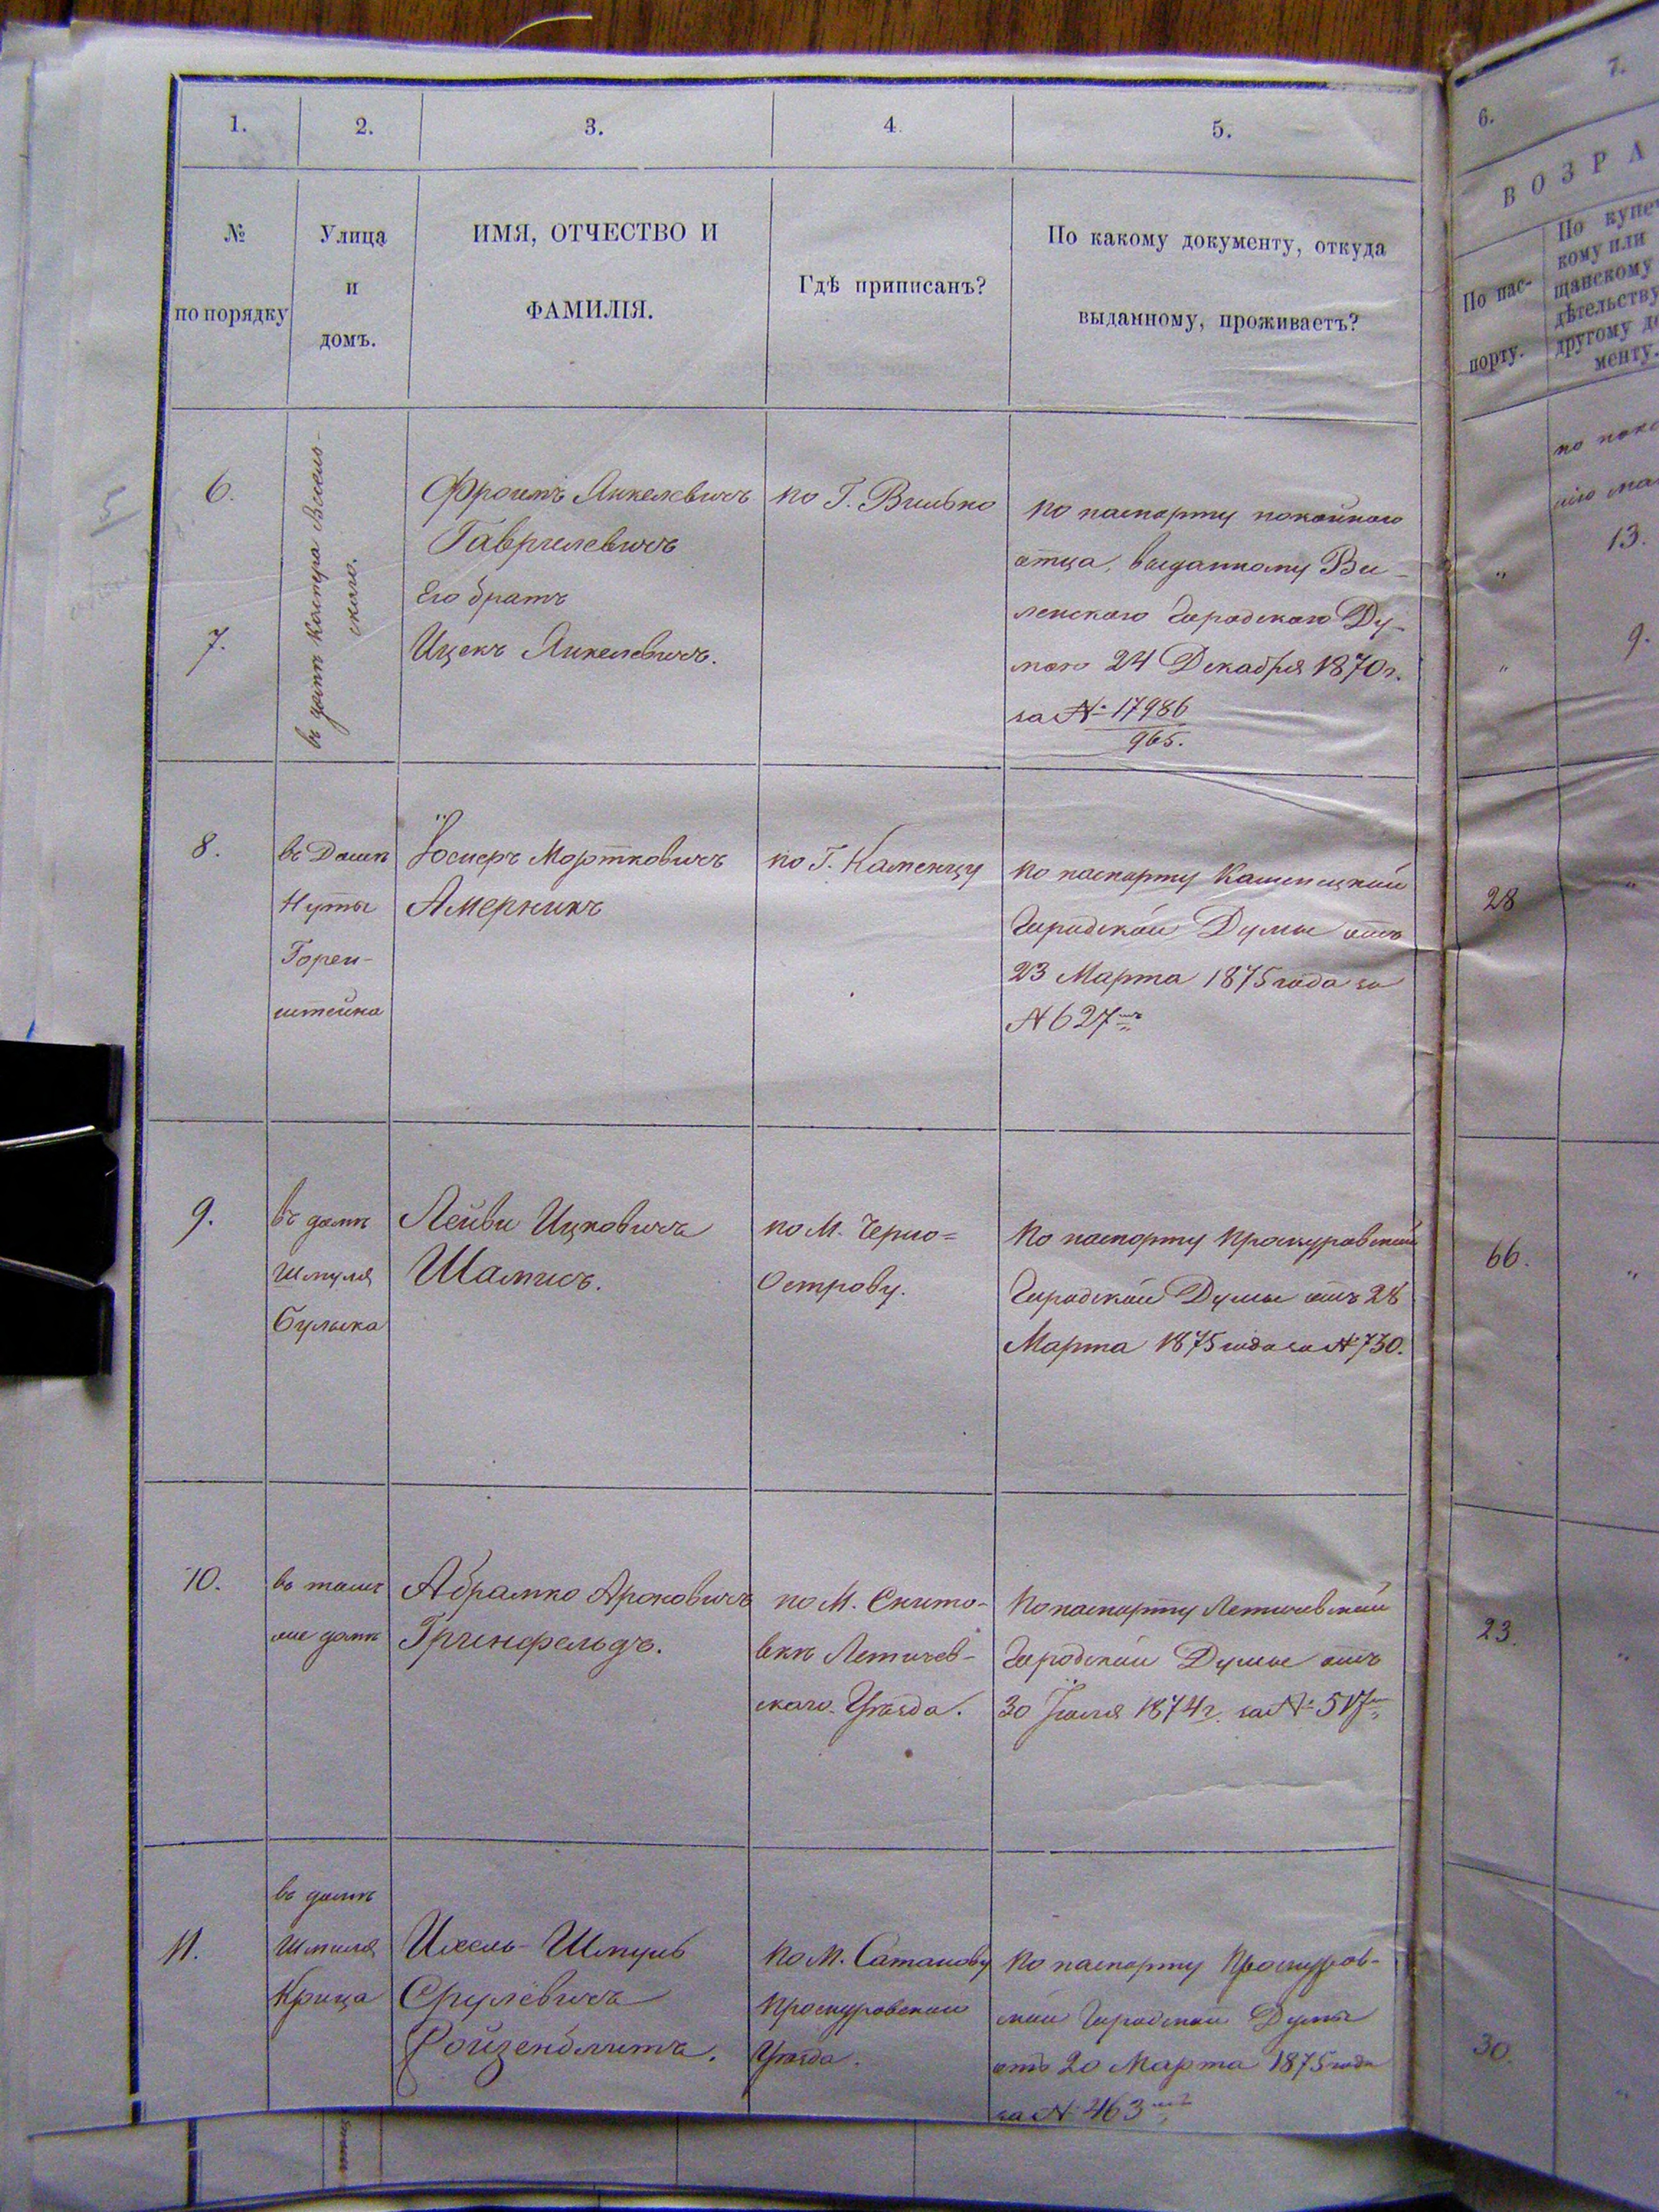 1.
2.
3.
4
5.
6.
7.
№
по порядку
Улица
и
домъ.
ИМЯ, ОТЧЕСТВО И
ФАМИЛІЯ.
Гдѣ приписанъ?
По какому документу, откуда
выданному, проживаетъ?
ВОЗРА
По пас-
порту.
По купе
кому или
щанскому
дѣтельству
другому до
менту.
6.
7.
въ домѣ
скаго.
Фроимъ Янкелевичъ
Гаврилевичъ
Его братъ
Ицекъ Янкелевичъ.
по Г. Вильно
по паспорту покойного
отца, выданному Ви-
ленскою Городскою Ду-
мою 24 Декабря 1870 г.
за № 17986
965.
по
13.
"
9.
"
8.
въ Домѣ
Нуты
Горен-
штейна
Іосперъ Мортковичъ
Америкъ
по Г. Каменцу
по паспорту Каменецкой
Городской Думы отъ
23 Марта 1875 года за
№ 627мъ
28
"
9.
въ домѣ
Шмуля
Булыка
Лейви Ицковичъ
Шамисъ.
по М. Черно=
Острову.
По паспорту Проскуровской
Городской Думы отъ 28
Марта 1875 года за № 730.
66.
"
10.
въ томъ
же домѣ
Абрамко Ароновичъ
Гринфельдъ.
по М.
Летичев-
скаго Уѣзда.
По паспорту Летичевской
Городской Думы отъ
30 Іюля 1874 г. за № 517
23.
"
11.
въ домѣ
Шмиля
Крица
Ихель-Шмуль
Срулевичъ
Ройзенблитъ.
по М. Сатанову
Проскуровскаго
Уѣзда.
По паспорту Проскуров-
ской Городской Думы
отъ 20 Марта 1875 года
за № 463мъ
30.
"